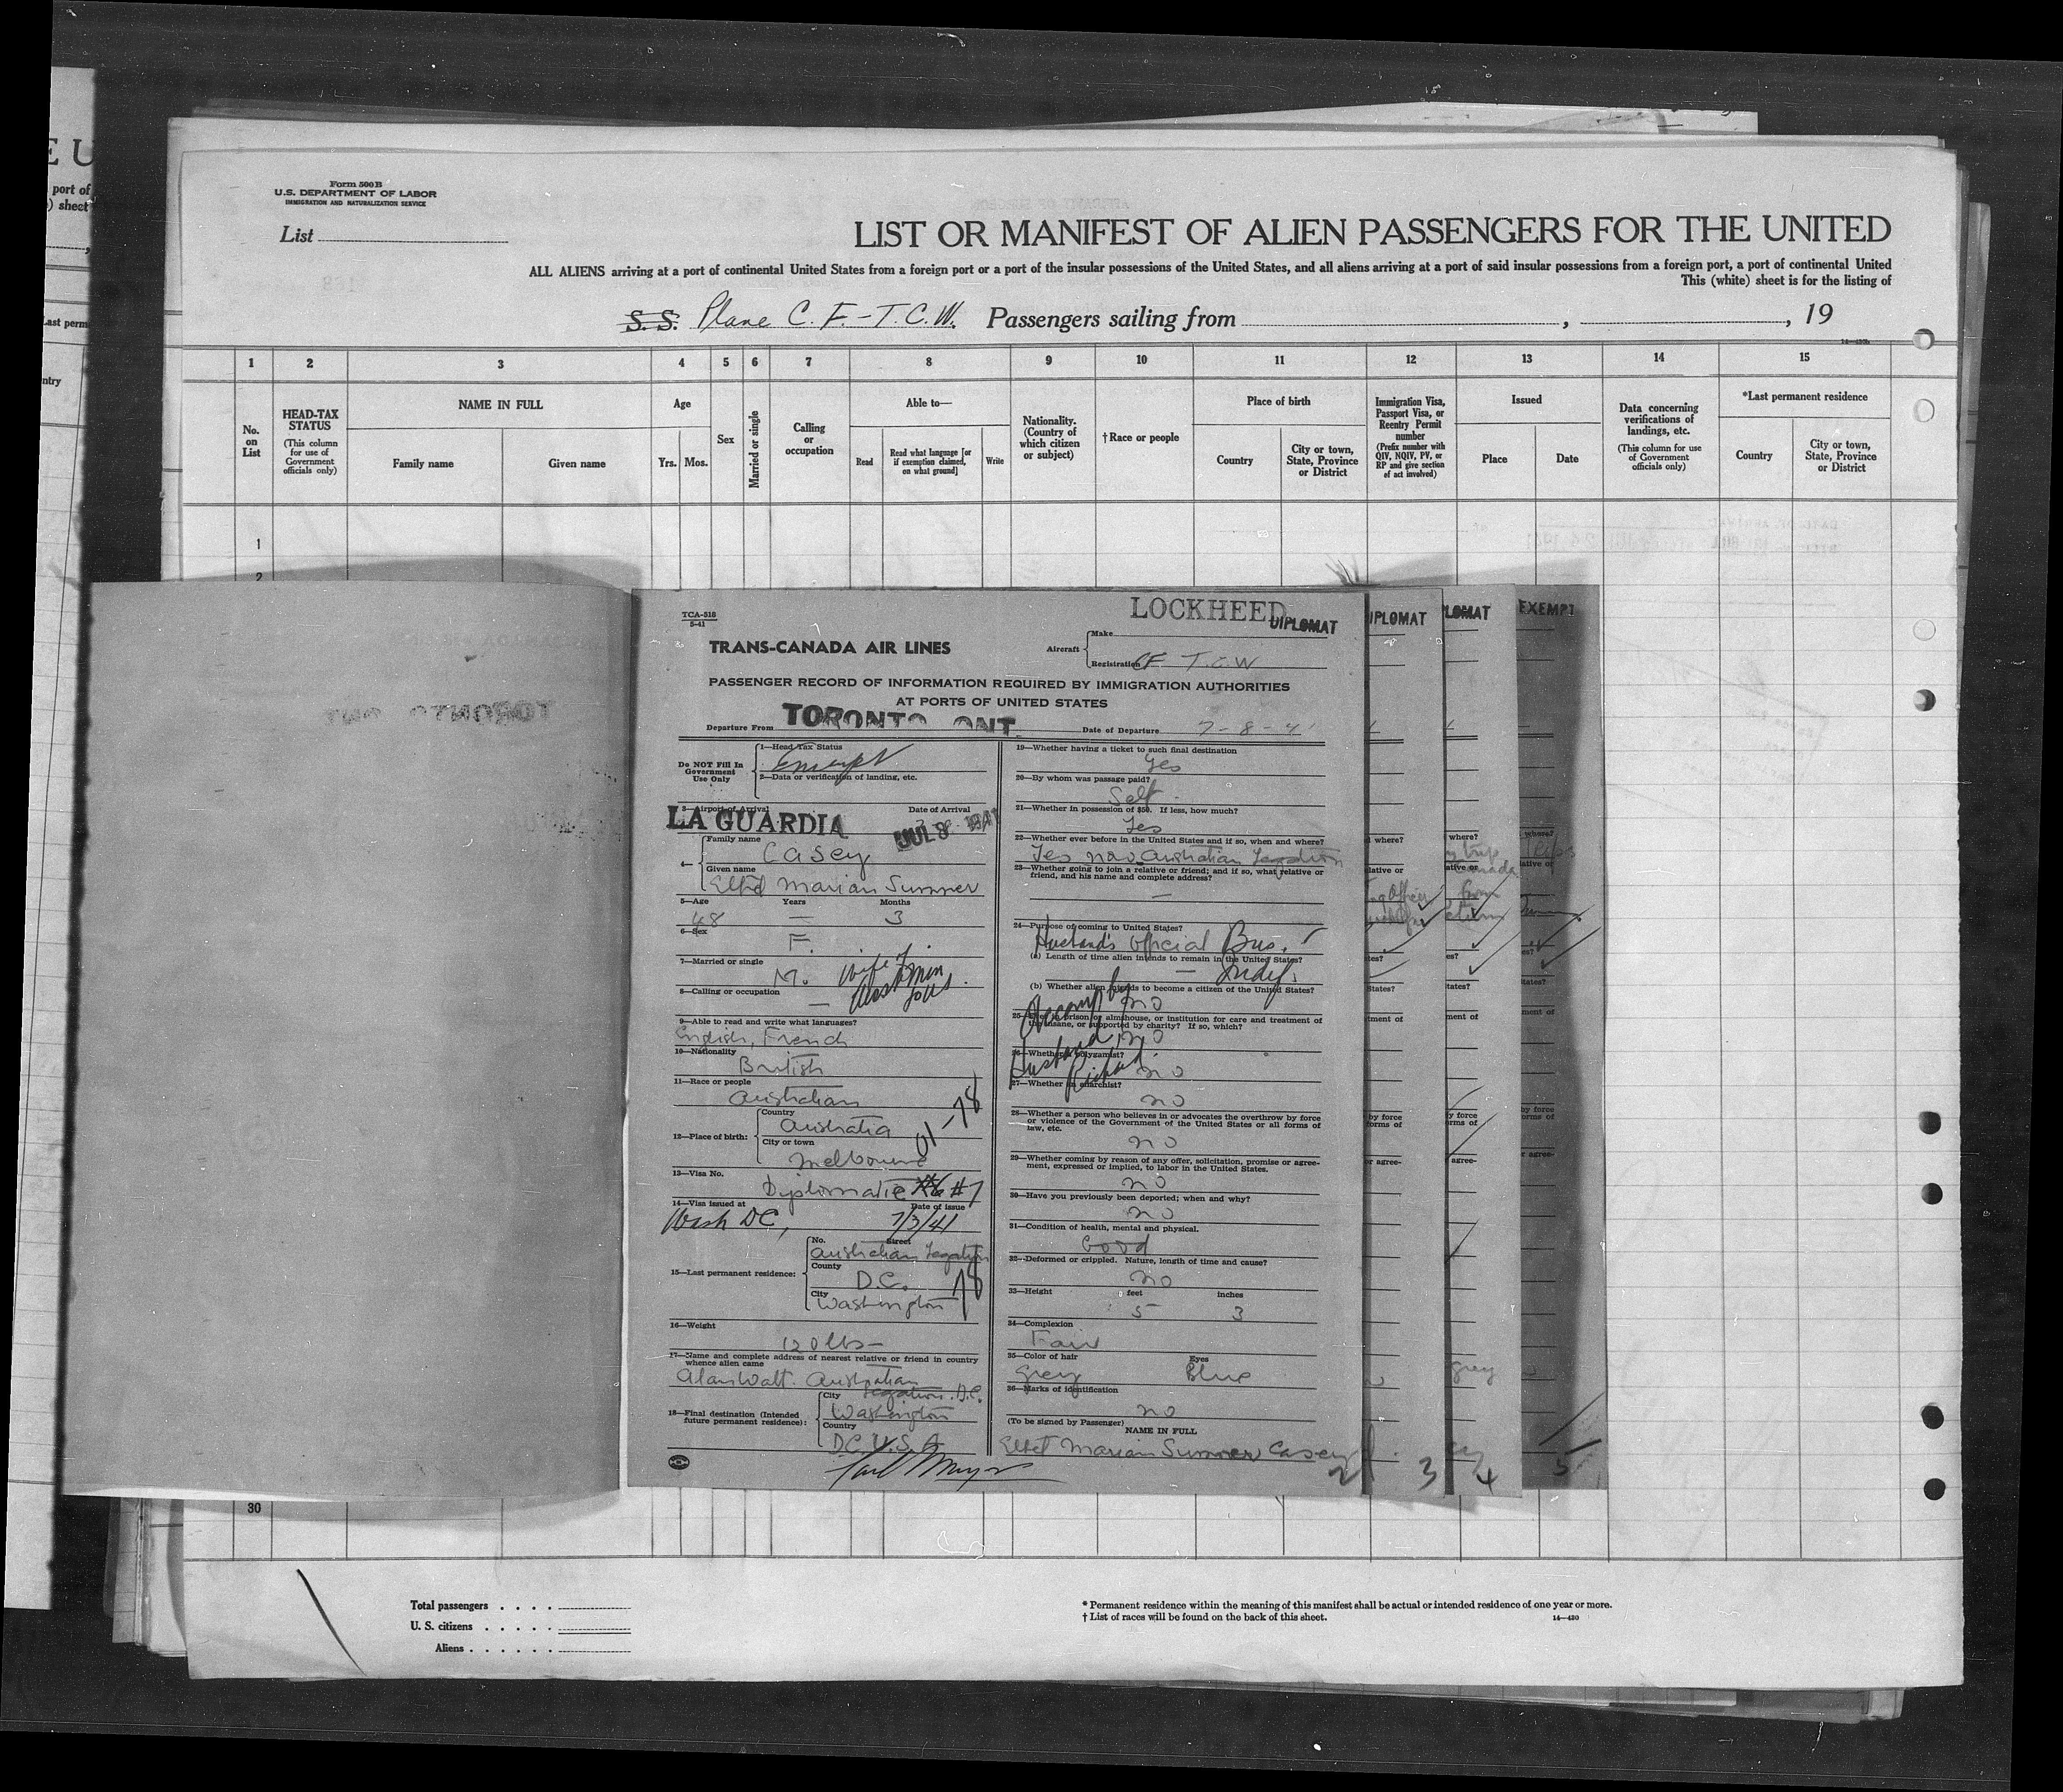 E U
port of
) sheet
Last perm
ntry
Form 500 B
U.S. DEPARTMENT OF LABOR
IMMIGRATION AND NATURALIZATION SERVICE
List
LIST OR MANIFEST OF ALIEN PASSENGERS FOR THE UNITED
ALL ALIENS arriving at a port of continental United States from a foreign port or a port of the insular possessions of the United States, and all aliens arriving at a port of said insular possessions from a foreign port, a port of continental United
This (white) sheet is for the listing of
S.S. Plane C. F.-T.C.W. Passengers sailing from , , 19
1 2 3 4 5 6 7 8 9 10 11 12 13 14 15
No. on List
HEAD-TAX STATUS
(This column for use of Government officials only)
NAME IN FULL
Family name Given name
Age
Yrs. Mos.
Sex
Married or single
Calling or occupation
Able to—
Read
Read what language [or if exemption claimed, on what ground]
Write
Nationality. (Country of which citizen or subject)
†Race or people
Place of birth
Country
City or town, State, Province or District
Immigration Visa, Passport Visa, or Reentry Permit number
(Prefix number with QIV, NQIV, PV, or RP and give section of act involved)
Issued
Place Date
Data concerning verifications of landings, etc.
(This column for use of Government officials only)
*Last permanent residence
Country
City or town, State, Province or District
1
2
TCA-518
5-41
LOCKHEED
DIPLOMAT
TRANS-CANADA AIR LINES
Aircraft
Make
Registration CF T.C.W
PASSENGER RECORD OF INFORMATION REQUIRED BY IMMIGRATION AUTHORITIES
AT PORTS OF UNITED STATES
Departure From TORONTO ONT. Date of Departure 7-8-41
Do NOT Fill In Government Use Only
1—Head Tax Status
Exempt
2—Data or verification of landing, etc.
3—Airport of Arrival Date of Arrival
LA GUARDIA JUL 8 1941
4—
Family name
Casey
Given name
Ethel Marian Sumner
5—Age Years Months
48 — 3
6—Sex
F.
7—Married or single
M. wife of
min
8—Calling or occupation
—
9—Able to read and write what languages?
English, French
10—Nationality
British
11—Race or people
Australian
12—Place of birth:
Country
Australia
City or town
Melbourne
01-78
13—Visa No.
Diplomatic #6 #7
14—Visa issued at Date of issue
Wash DC, 7/3/41
15—Last permanent residence:
No. Street
Australian Legation
County
D.C.
City
Washington
78
16—Weight
120 lbs—
17—Name and complete address of nearest relative or friend in country whence alien came
Alan Watt. Australian
Legation. D.C.
18—Final destination (Intended future permanent residence):
City
Washington
Country
D.C. U.S.A
19—Whether having a ticket to such final destination
Yes
20—By whom was passage paid?
Self
21—Whether in possession of $50. If less, how much?
Yes
22—Whether ever before in the United States and if so, when and where?
Yes now Australian Legation
23—Whether going to join a relative or friend; and if so, what relative or friend, and his name and complete address?
—
24—Purpose of coming to United States?
Husband's Official Bus.
(a) Length of time alien intends to remain in the United States?
— Indef.
(b) Whether alien intends to become a citizen of the United States?
no
25—Ever in prison or almshouse, or institution for care and treatment of the insane, or supported by charity? If so, which?
no
Accomp by
Husband,
Richard
26—Whether a polygamist?
no
27—Whether an anarchist?
no
28—Whether a person who believes in or advocates the overthrow by force or violence of the Government of the United States or all forms of law, etc.
no
29—Whether coming by reason of any offer, solicitation, promise or agreement, expressed or implied, to labor in the United States.
no
30—Have you previously been deported; when and why?
no
31—Condition of health, mental and physical.
Good
32—Deformed or crippled. Nature, length of time and cause?
no
33—Height feet inches
5 3
34—Complexion
Fair
35—Color of hair Eyes
Grey Blue
36—Marks of identification
no
(To be signed by Passenger)
NAME IN FULL
Ethel Marian Sumner Casey
2 3 4 5
IPLOMAT
LOMAT
EXEMPT
where?
lative or
Canada
from
tates?
ment of
by force
orms of
or agree-
grey
30
Total passengers
U. S. citizens
Aliens
* Permanent residence within the meaning of this manifest shall be actual or intended residence of one year or more.
† List of races will be found on the back of this sheet.
14—430